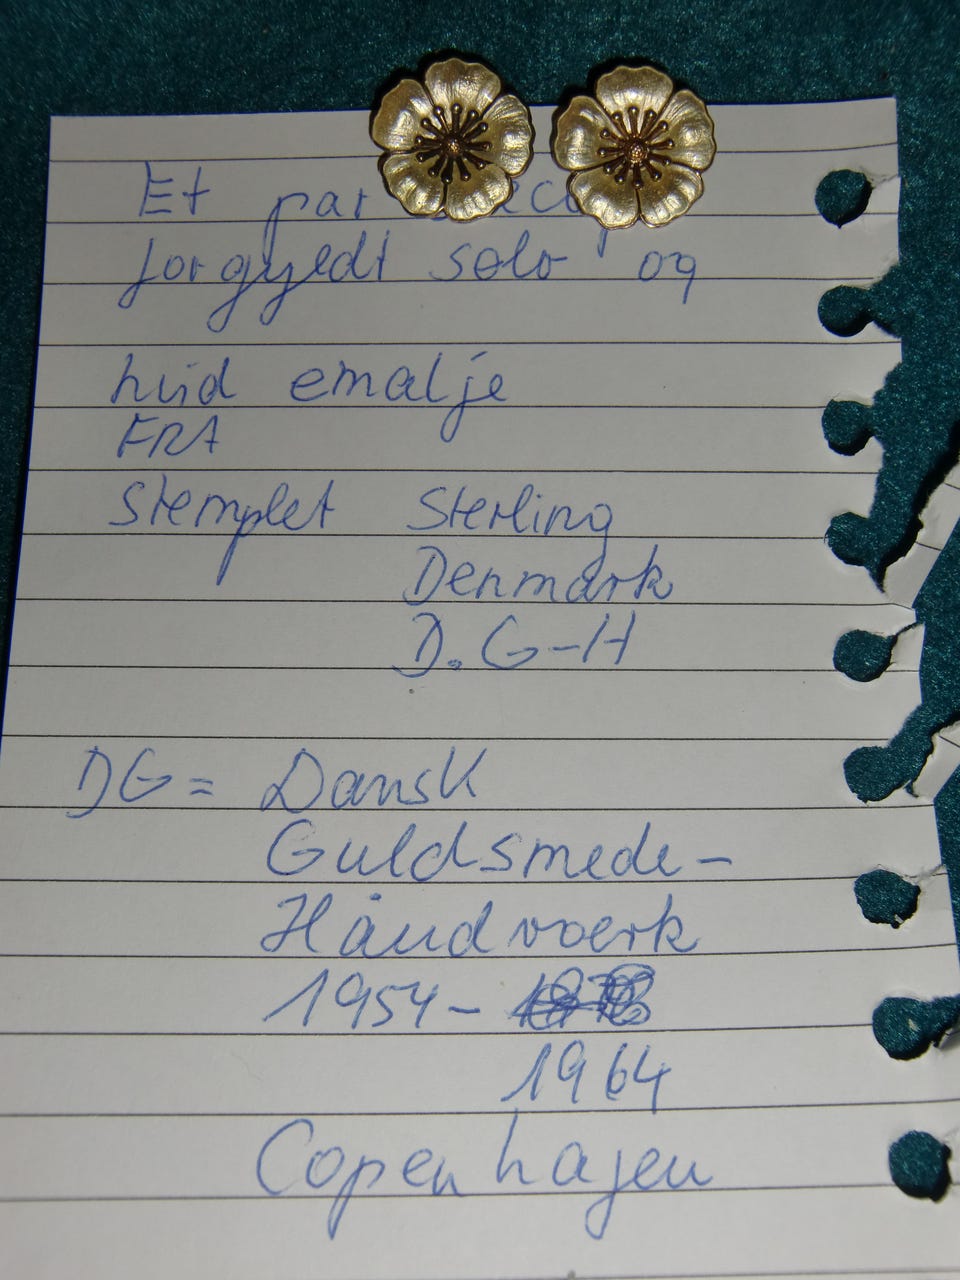 Et par
forgyldt sølv og
hvid emalje
FRA
Stemplet Sterling
Denmark
D.G-H
DG = Dansk
Guldsmede-
Håndværk
1954-
1964
Copenhagen